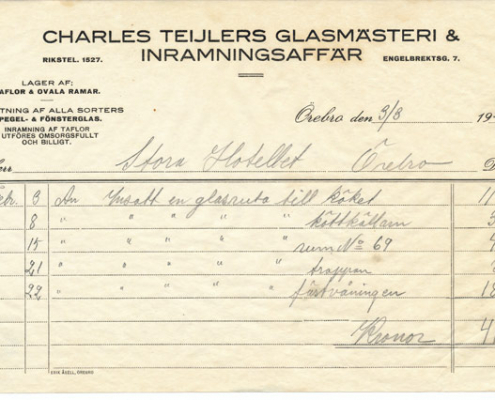 CHARLES TEIJLERS GLASMÄSTERI &
INRAMNINGSAFFÄR
RIKSTEL. 1527.
ENGELBREKTSG. 7.
LAGER AF;
AFLOR & OVALA RAMAR.
TNING AF ALLA SORTERS
PEGEL- & FÖNSTERGLAS.
INRAMNING AF TAFLOR
UTFÖRES OMSORGSFULLT
OCH BILLIGT.
Örebro den 3/8 19
Stora Hotellet Örebro
3 An Insatt en glasruta till köket 11
8 " " " " " köttkällarn
15 " " " " " rum No 69
21 " " " " " trappan
22 " " " " " förstvåningen 12
Kronor 4
ERIK ÅSELL, ÖREBRO